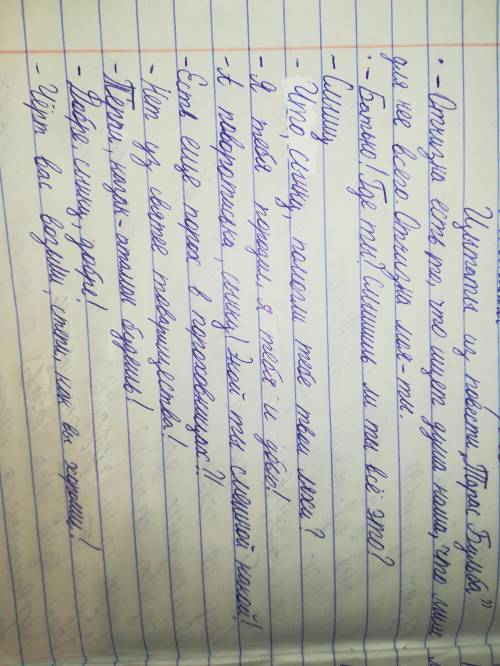 Цытаты из повести „Тарас Бульба"
- Отчизна есть то, что ищет душа наша, что милее
для нее всего. Отчизна моя - ты.
- Батько! Где ты? Слышишь ли ты всё это?
- Слышу
- Что, сынку, помогли тебе твои ляхи?
- Я тебя породил, я тебя и убью!
- А поворотись-ка, сынку! Экой ты смешной какой!
- Есть ещё порох в пороховницах?!
- Нет уз святее товарищества!
- Терпи, козак - атаман будешь!
- Добре, сынку, добре!
- Чёрт вас возьми, степи, как вы хороши!